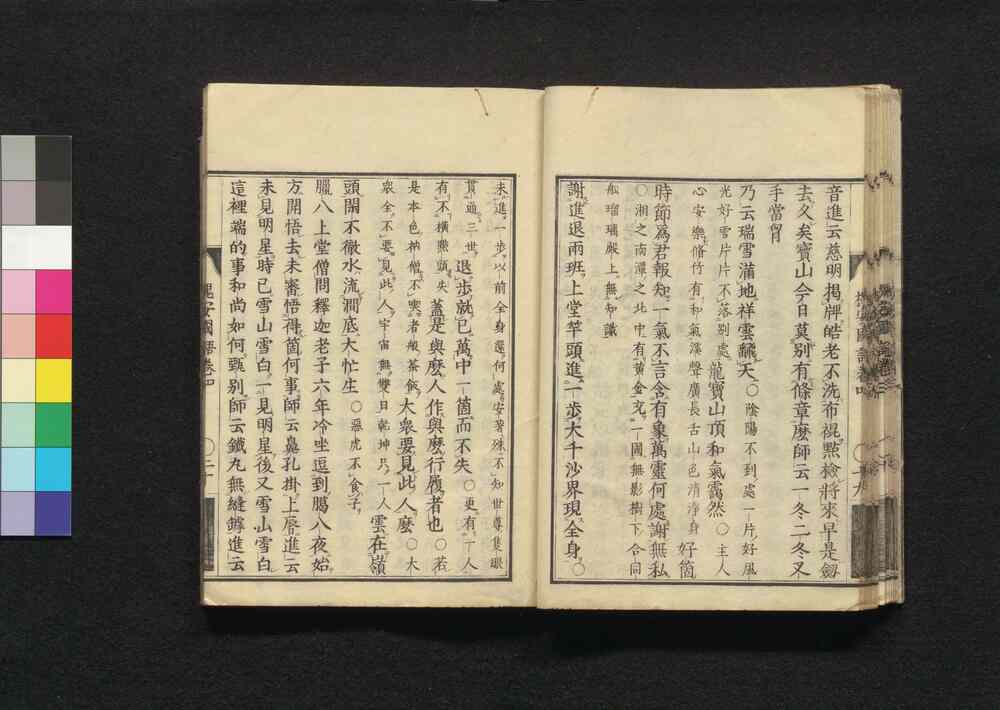 音進云慈明揭牌皓老不洗布裩點檢將來早是劔
去久矣寶山今日莫別有條章麼師云一冬二冬又
手當胷
乃云瑞雪滿地祥雲靉天〇陰陽不到處一片好風
光好雪片片不落別處龍寶山頂和氣靄然〇主人
心安樂脩竹有和氣溪聲廣長舌山色清淨身好箇
時節爲君報知一氣不言含有象萬靈何處謝無私
〇湘之南潭之北中有黃金充一國無影樹下合同
舩瑠璃殿上無知識
謝進退兩班上堂竿頭進一步大千沙界現全身〇
未進一步以前全身還何處安著殊不知世尊隻眼
貫通三世退步就已萬中一箇而不失〇更有一人
有不橫點頭失蓋是與麼人作與麼行履者也〇若
是本色衲僧不寒者般茶飯大衆要見此人麼〇大
衆全不要見此人宇宙無雙日乾坤只一人雲在嶺
頭閒不徹水流澗底大忙生〇惡虎不食子
臘八上堂僧問釋迦老子六年冷坐逗到臈八夜始
方開悟去未審悟得箇何事師云鼻孔掛上唇進云
未見明星時已雪山雪白一見明星後又雪山雪白
這裡端的事和尚如何甄別師云鐵丸無縫鏬進云
槐安國語卷四 〇二十